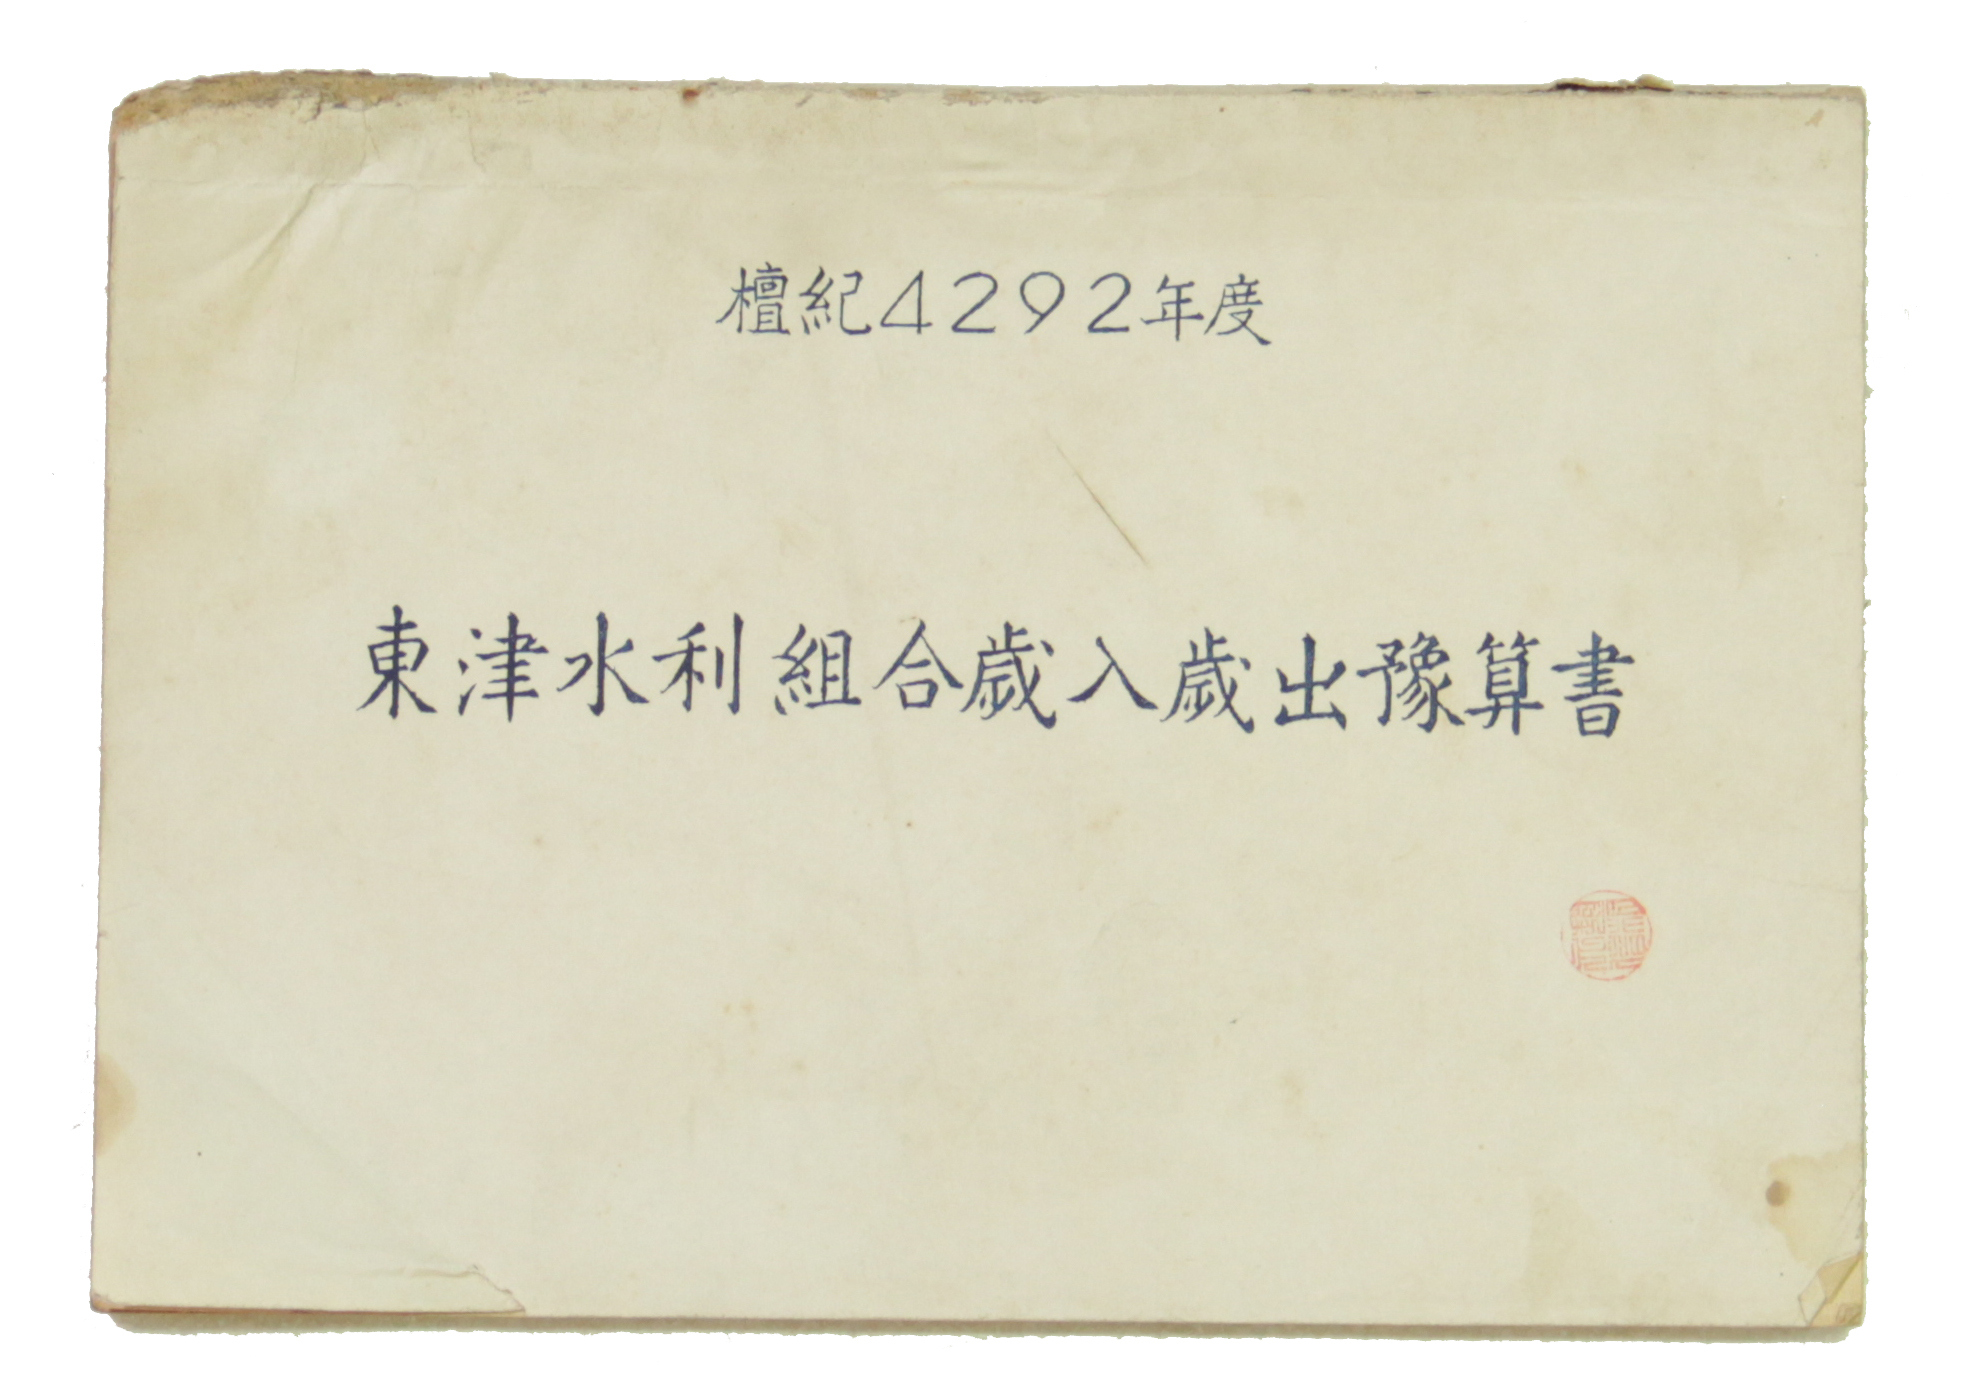 檀紀4292年度
東津水利組合歲入歲出豫算書